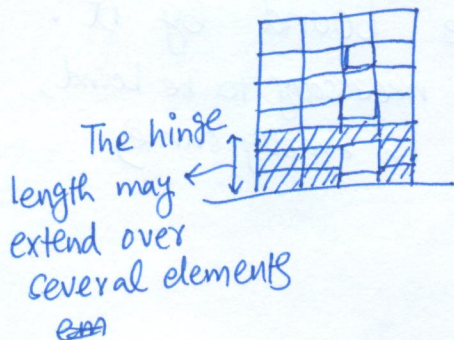 The hinge
length may
extend over
several elements